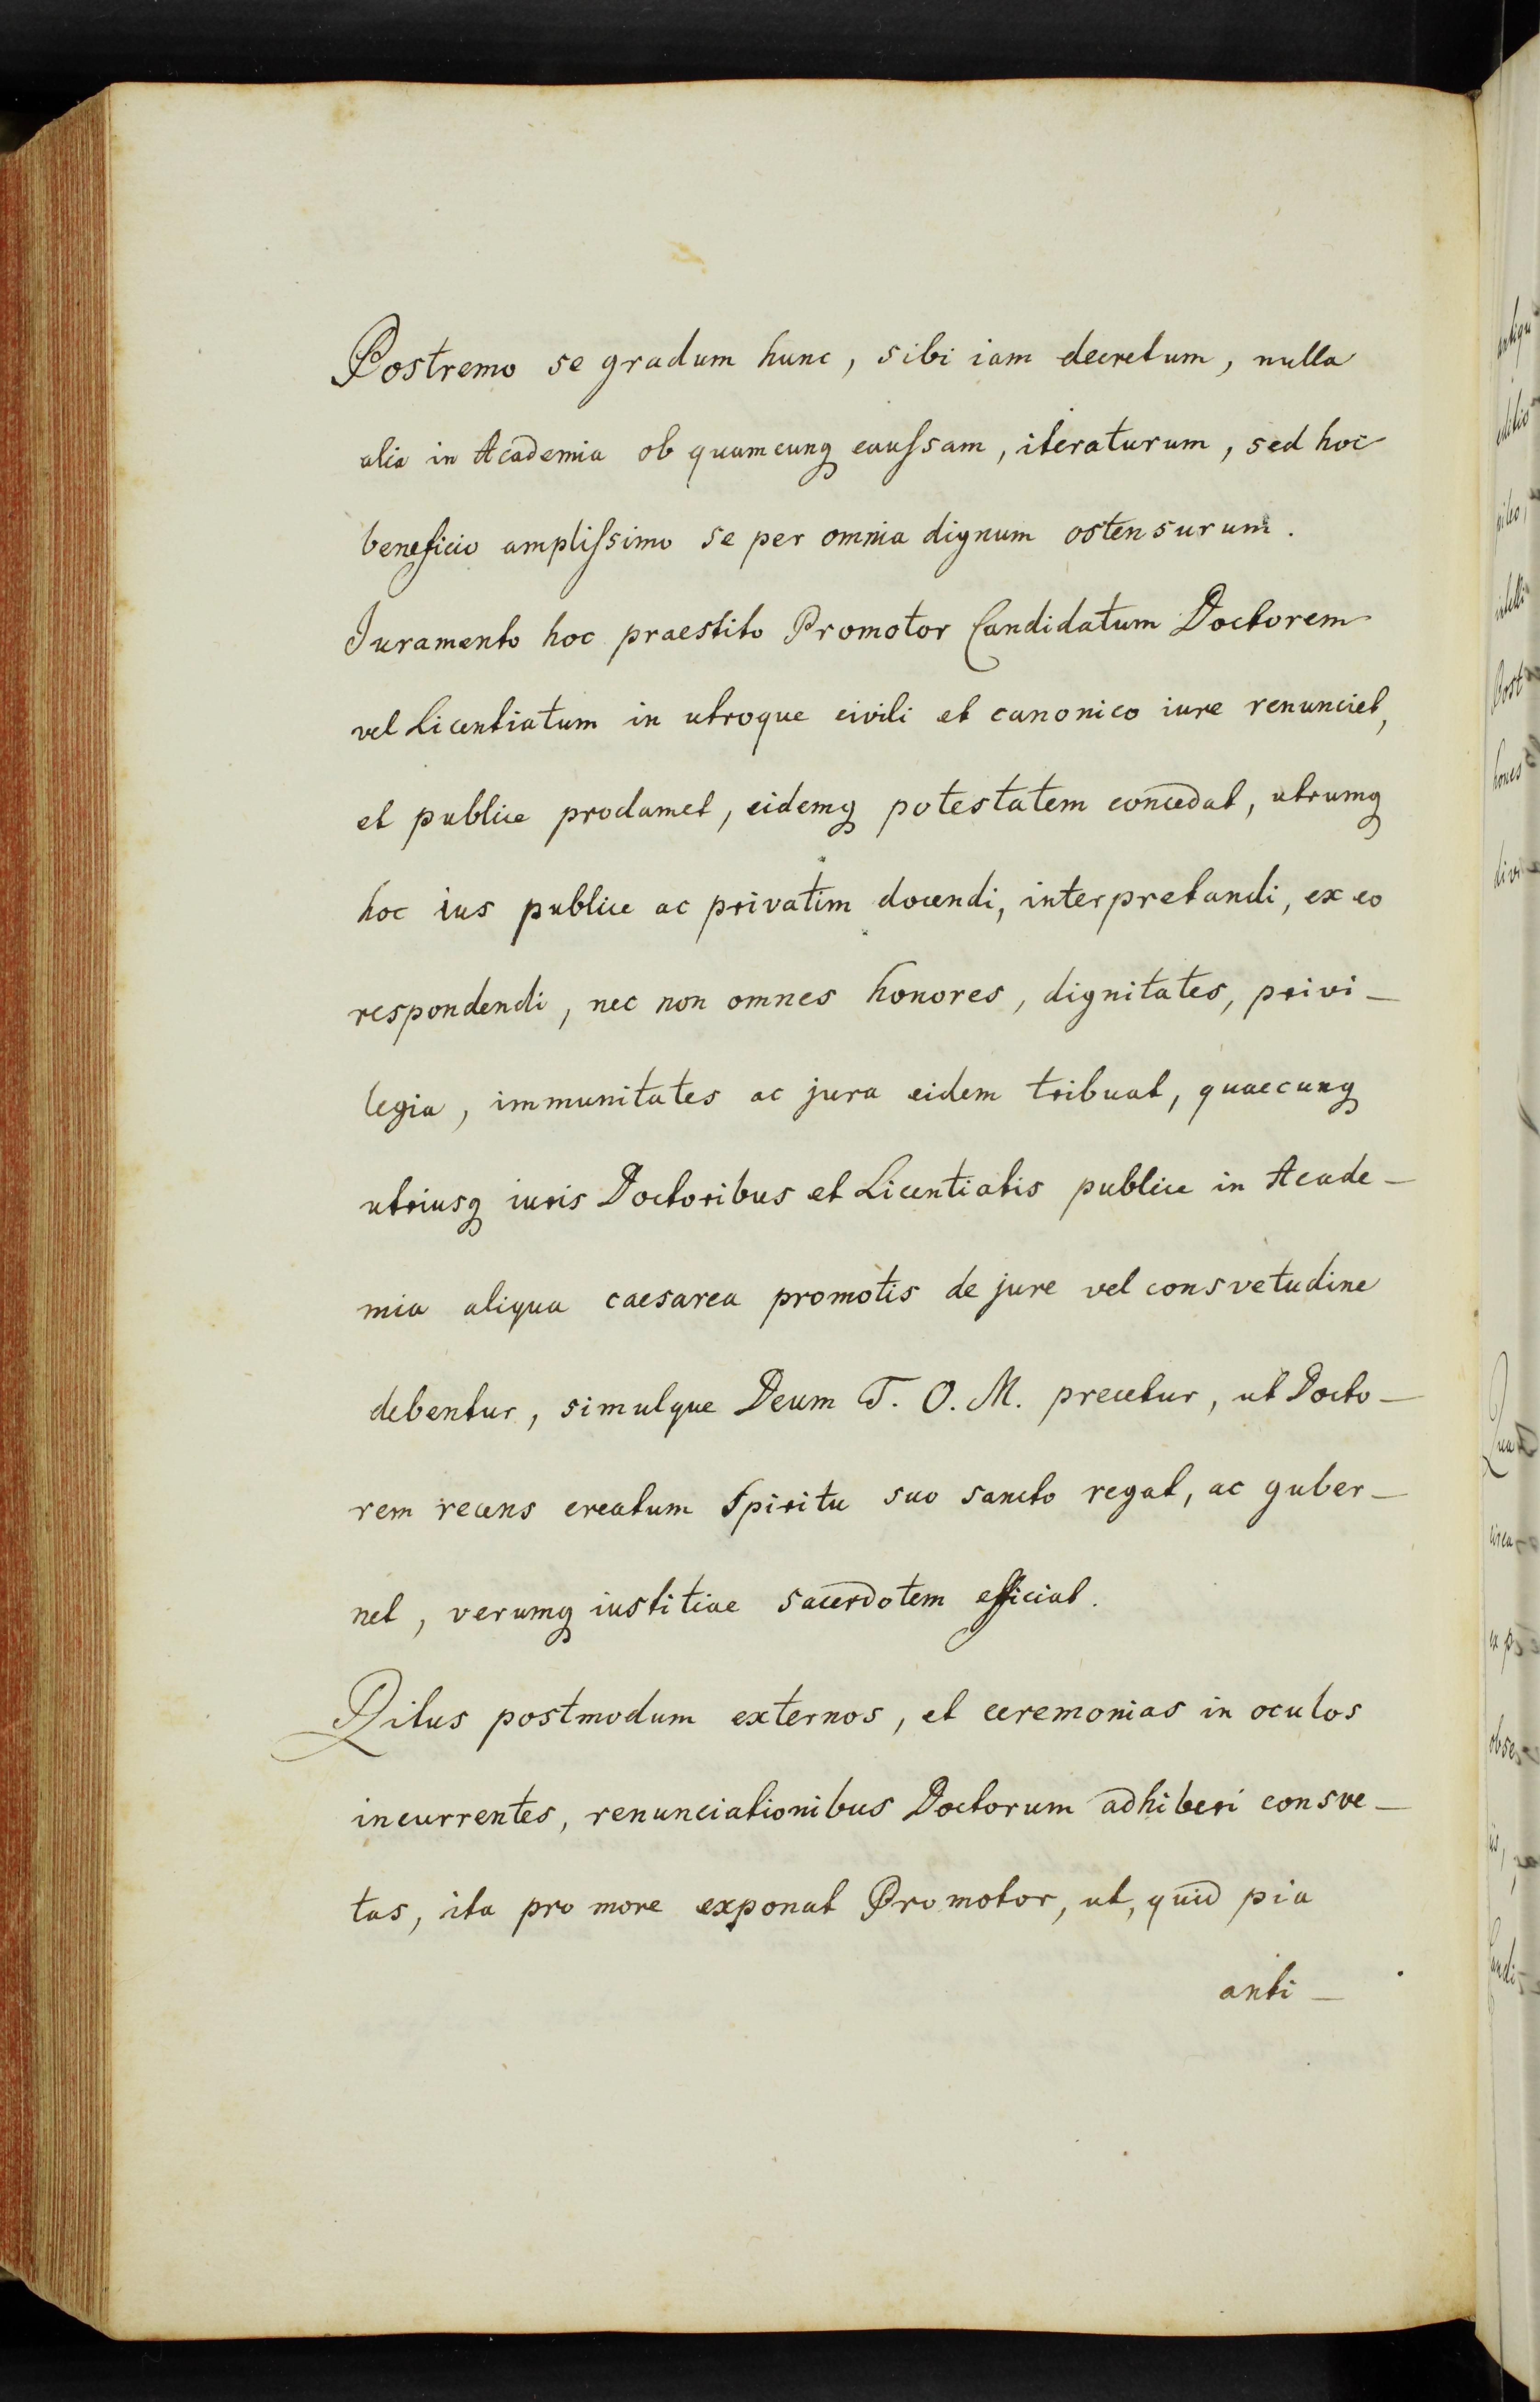 Postremo se gradum hunc, sibi iam decretum, nulla
alia in Academia ob quamcunq caussam, iteraturum, sed hoc
beneficio amplissimo se per omnia dignum ostensurum.
Juramento hoc praestito Promotor Candidatum Doctorem
vel Licentiatum in utroque civili et canonico iure renunciet,
et publice proclamet, eidemq potestatem concedat, utrumq
hoc ius publice ac privatim docendi, interpretandi, ex eo
respondendi, nec non omnes honores, dignitates, privi-
legia, immunitates ac jura eidem tribuat, quaecunq
utriusq iuris Doctoribus et Licentiatis publice in Acade-
mia aliqua caesarea promotis de jure vel consvetudine
debentur, simulque Deum T. O. M. precetur, ut Docto-
rem recens creatum Spiritu suo sancto regat, ac guber-
net, verumq iustitiae sacerdotem efficiat.
Ritus postmodum externos, et ceremonias in oculos
incurrentes, renunciationibus Doctorum adhiberi consve-
tas, ita pro more exponat Promotor, ut, quid pia
anti-